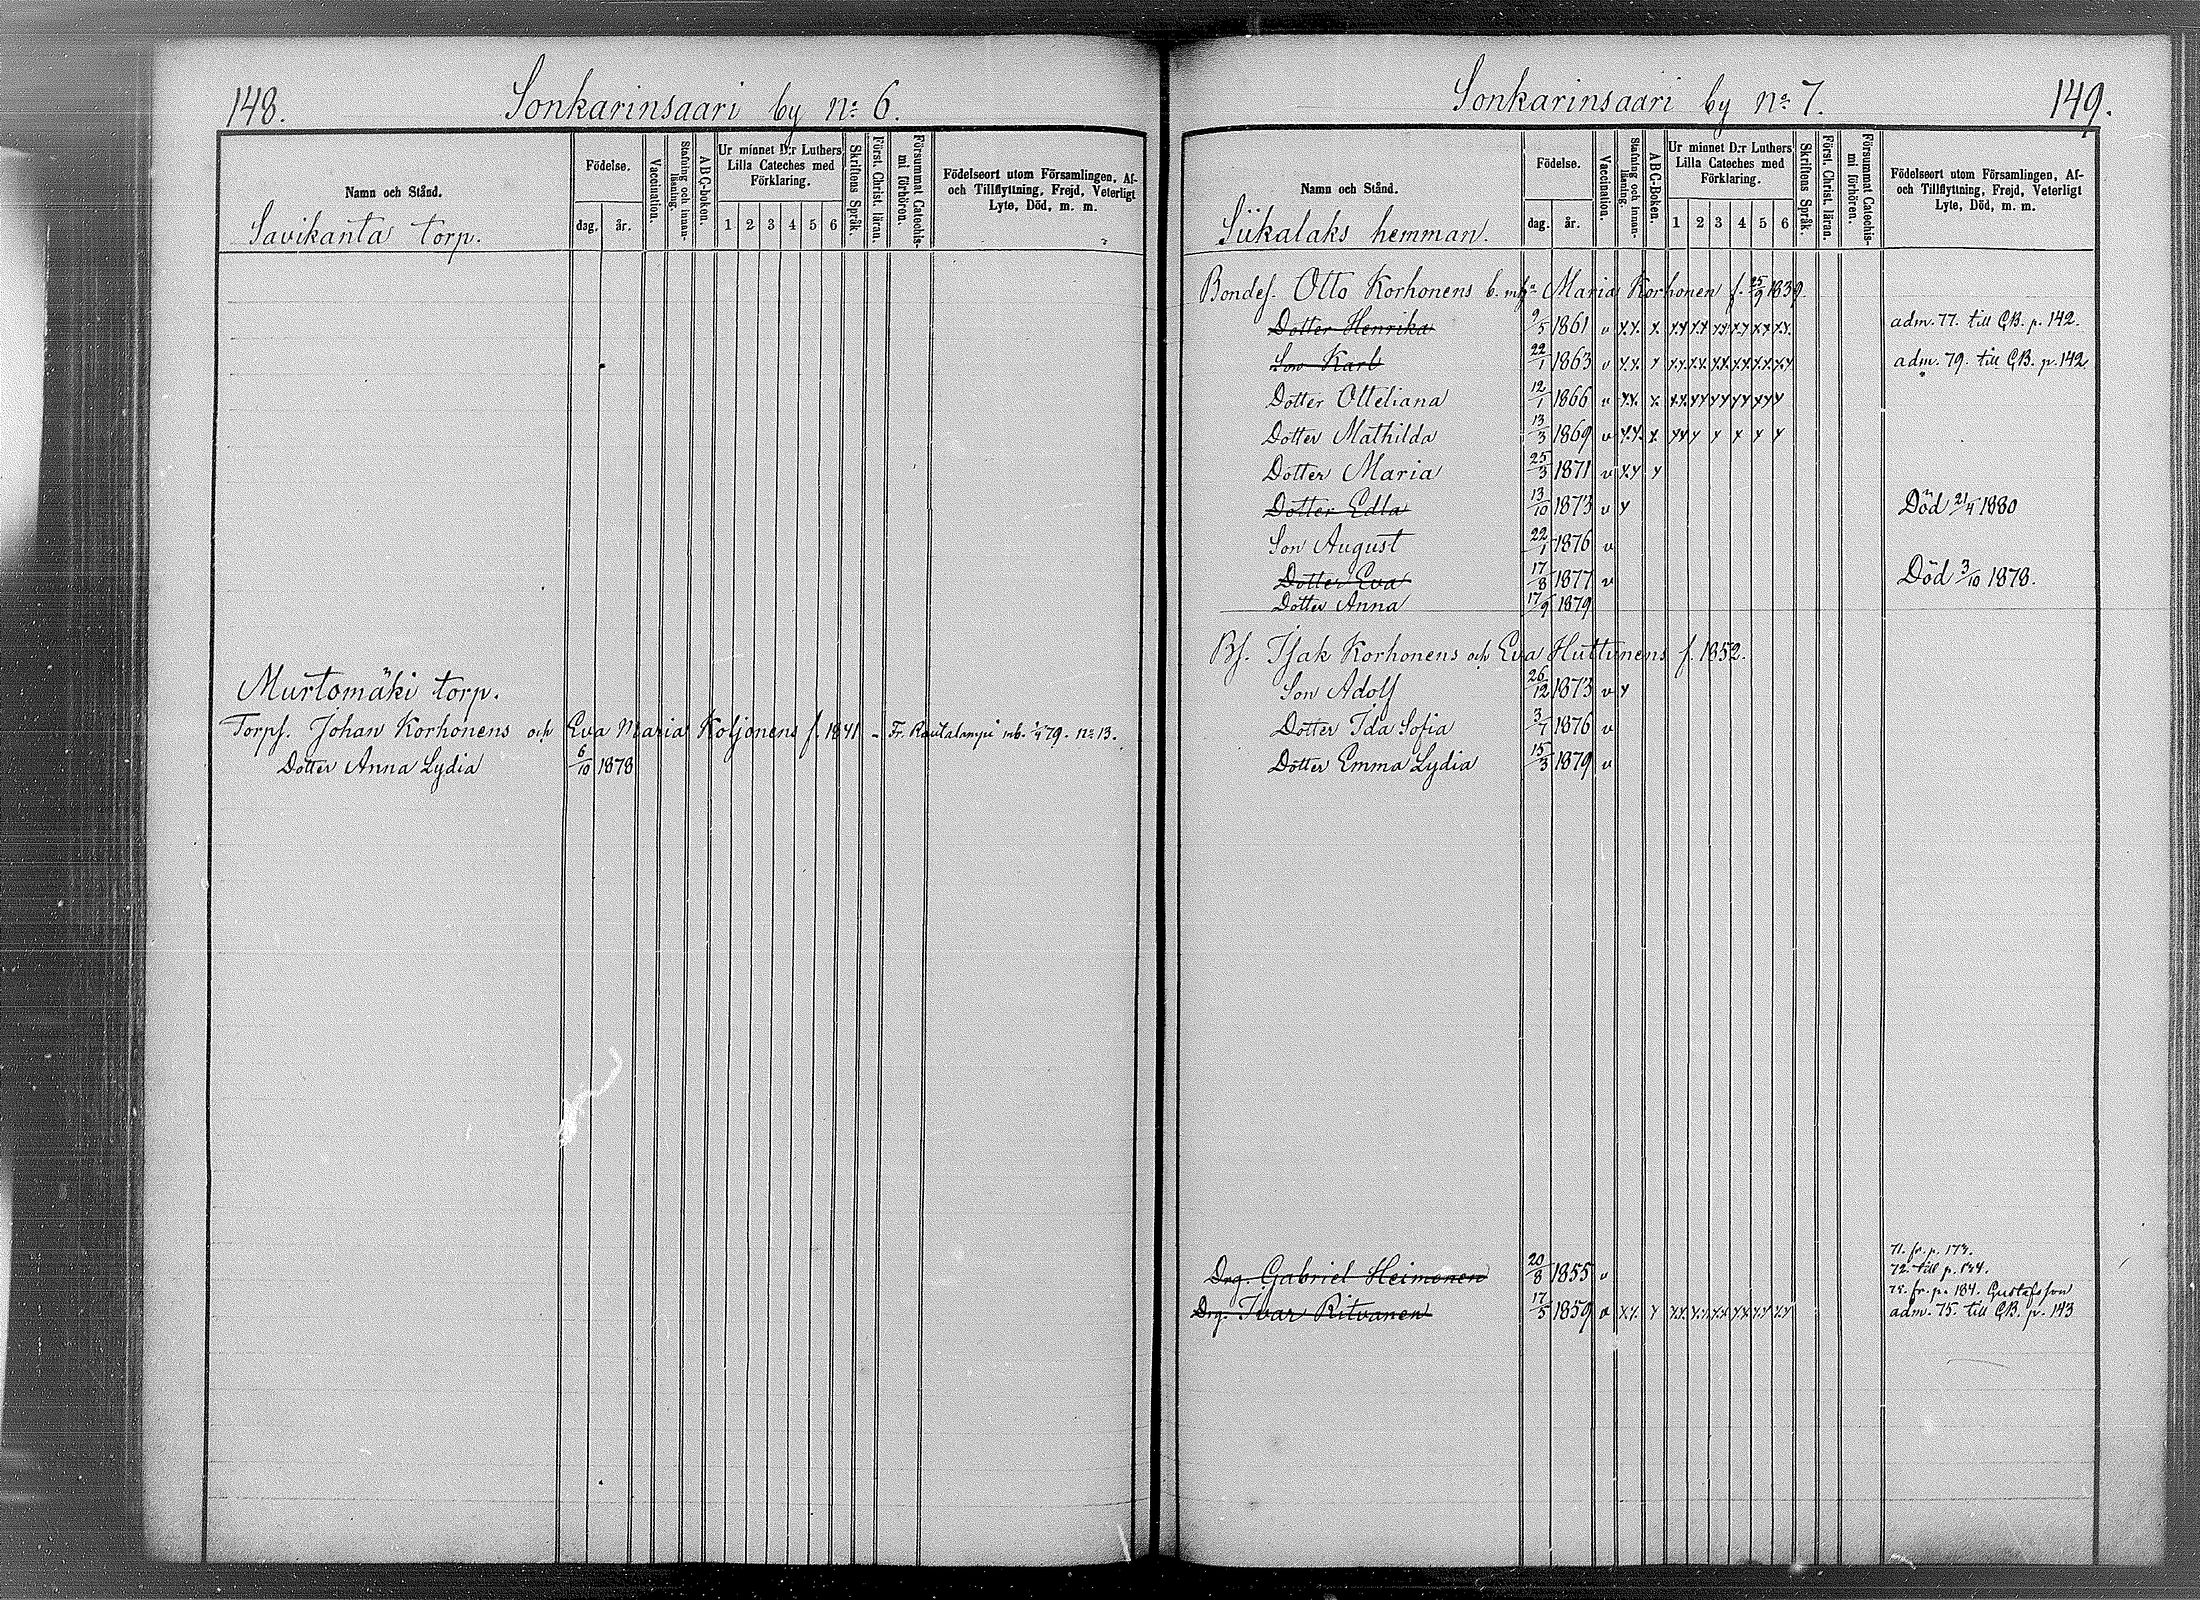 148.
Sonkarinsaari by No 6.
Namn och Stånd.
Födelse.
dag.
år.
Vaccination.
Stafning och innan-läsning.
ABC-boken.
Ur minnet D:r Luthers
Lilla Cateches med
Förklaring.
1 2 3 4 5 6
Skriftens Språk.
Först. Christ. läran.
Försummat Catechis-mi förhören.
Födelseort utom Församlingen, Af-
och Tillflyttning, Frejd, Veterligt
Lyte, Död, m. m.
Savikanta torp.
Murtomäki torp.
Torps. Johan Korhonens och Eva Maria Koljonens f. 1841 - Fr. Rautalampi mb. 79. No 13.
Dotter Anna Lydia 6/10 1878
149.
Sonkarinsaari by No 7.
Namn och Stånd.
Födelse.
dag.
år.
Vaccination.
Stafning och innan-läsning.
ABC-Boken.
Ur minnet D:r Luthers
Lilla Cateches med
Förklaring.
1 2 3 4 5 6
Skriftens Språk.
Först. Christ. läran.
Försummat Catechis-mi förhören.
Födelseort utom Församlingen, Af-
och Tillflyttning, Frejd, Veterligt
Lyte, Död, m. m.
Siikalaks hemman.
Bondes. Otto Korhonens b. m. Maria Korhonen f. 25/9 1839.
Dotter Henrika 9/5 1861 v x.x. x. xx xx xx xx xx xx adm. 77. till CB. p. 142.
Son Karl 22/1 1863 v x.x. x xx xx xx xx xx xx adm. 79. till CB. p. 142
Dotter Otteliana 12/1 1866 v x.x. x xx xx xx xx xx x
Dotter Mathilda 13/3 1869 v x.x. x xx x x x x x
Dotter Maria 25/3 1871 v x.x x
Dotter Edla 13/10 1873 v x Död 21/4 1880
Son August 22/1 1876 v
Dotter Eva 17/8 1877 v Död 3/10 1878.
Dotter Anna 17/9 1879
Bs. Isak Korhonens och Eva Huttunens f. 1852.
Son Adolf 26/12 1873 v x
Dotter Ida Sofia 3/7 1876 v
Dotter Emma Lydia 15/3 1879 v
71. fr. p. 173.
Drg. Gabriel Heimonen 20/8 1855 v 72. till p. 134.
75. fr. p. 184. Gustafsson
Drg. Ivar Ritvanen 17/5 1859 v x.x. x xx xx xx xx xx xx adm. 75. till CB. p. 143